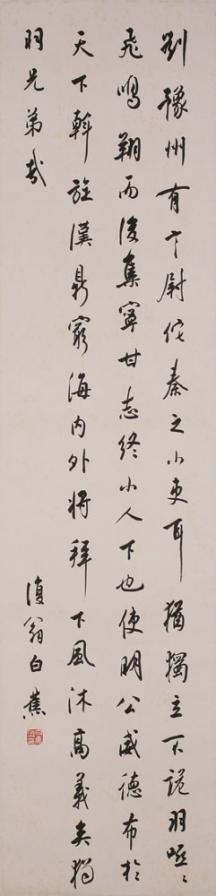 劉豫州有言尉佗秦之小吏耳猶獨立不詭羽啞〻
飛鳴翔而後集寧甘志終小人下也使明公威德布於
天下斡旋漢鼎窮海內外將拜下風沐高義矣獨
羽兄弟哉
復翁白蕉